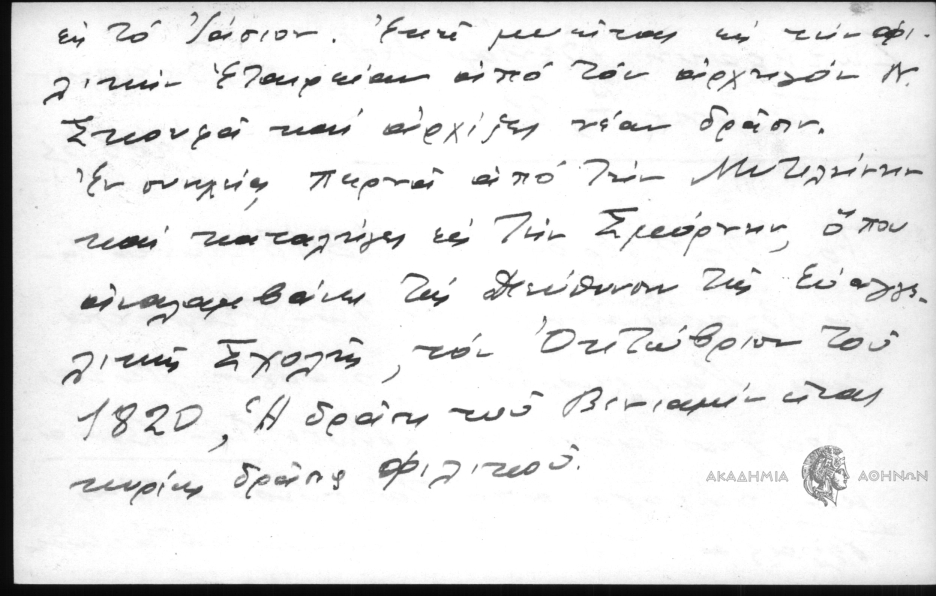 εἰς τό Ἰάσιον. Ἐκεῖ μυεῖται εἰς τήν Φι-
λικήν Ἑταιρείαν ἀπό τόν ἀρχηγόν Ν.
Σκουφᾶ καί ἀρχίζει νέαν δρᾶσιν.
Ἐν συνεχείᾳ περνᾶ ἀπό τήν Μυτιλήνην
καί καταλήγει εἰς τήν Σμύρνην, ὅπου
ἀναλαμβάνει τήν διεύθυνσιν τῆς Εὐαγγε-
λικῆς Σχολῆς, τόν Ὀκτώβριον τοῦ
1820, Ἡ δρᾶσις τοῦ Βενιαμίν εἶναι
κυρίως δρᾶσις Φιλικοῦ.
ΑΚΑΔΗΜΙΑ ΑΘΗΝΩΝ